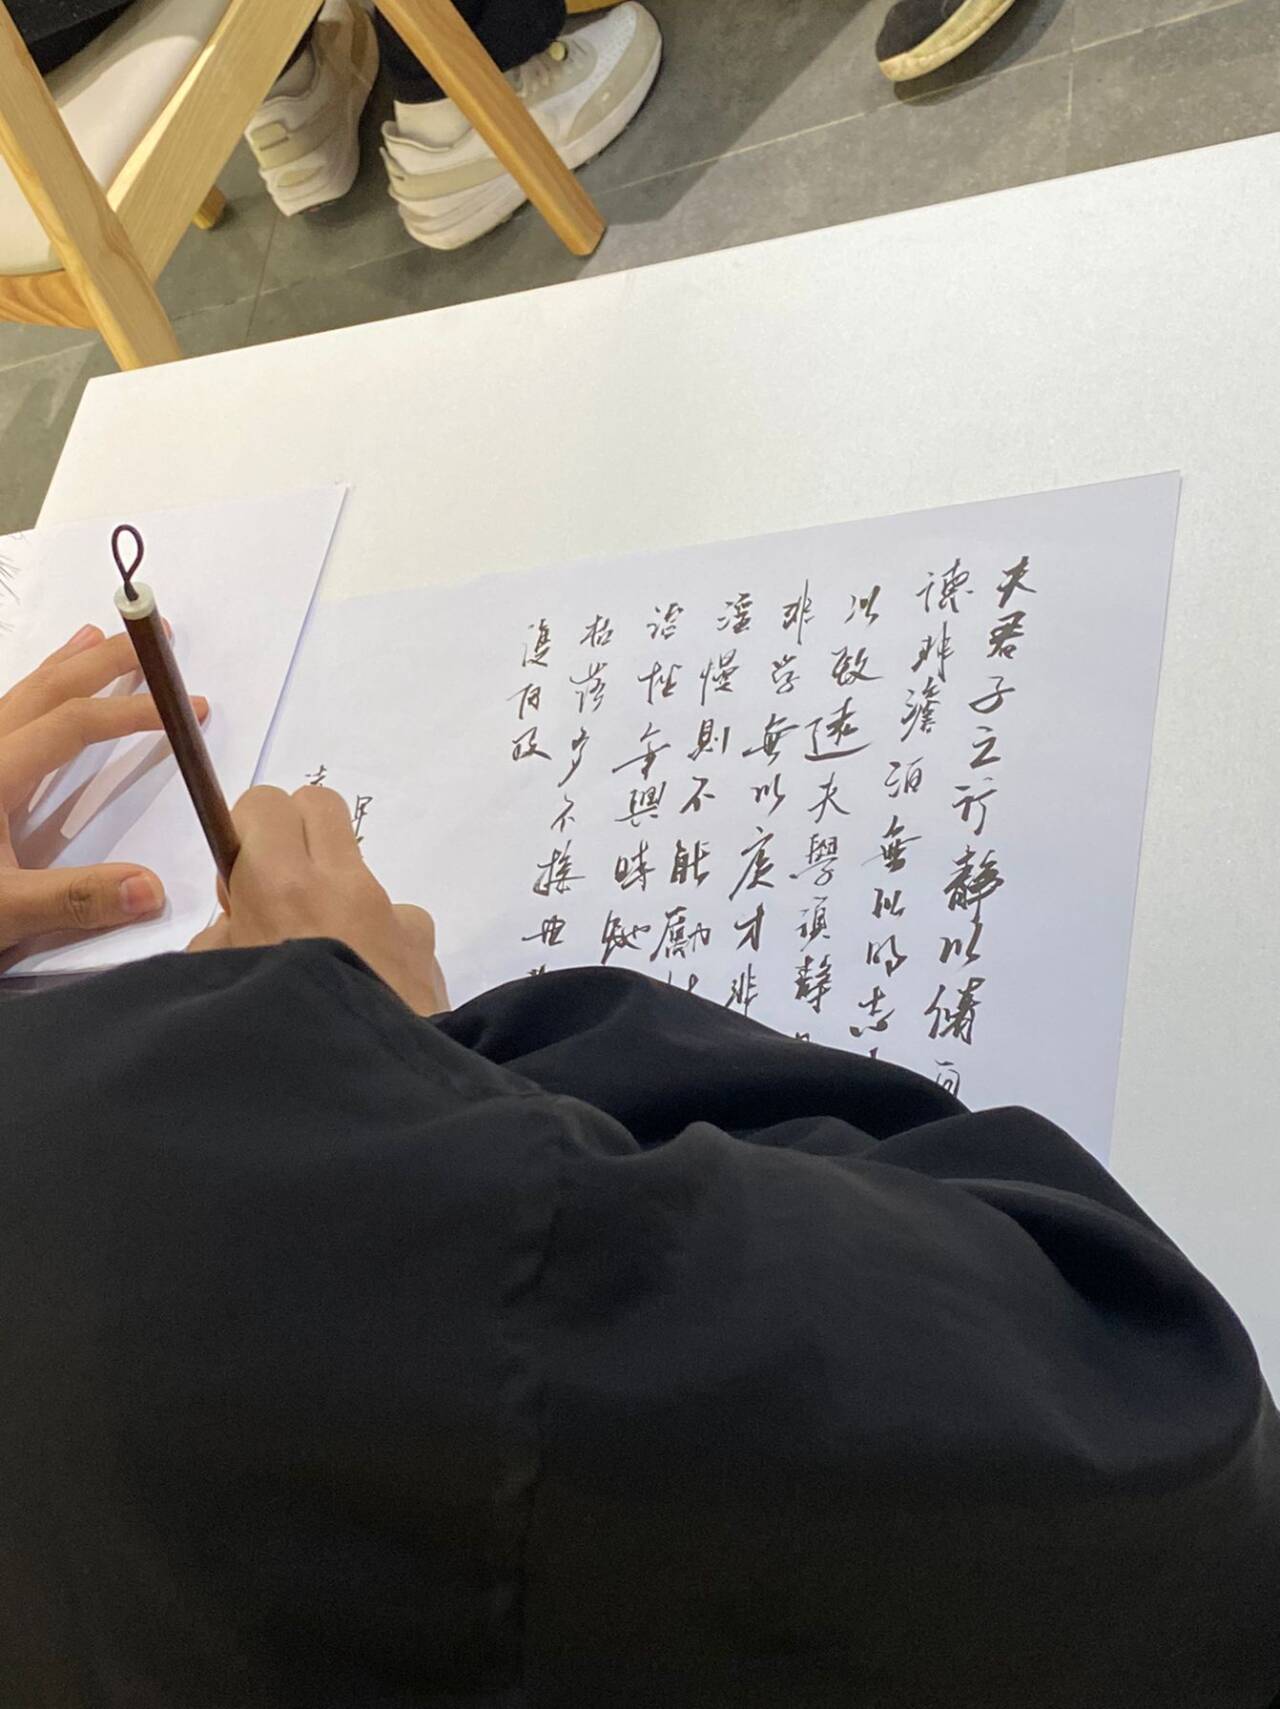 夫君子之行靜以脩
德非澹泊無以明志
以致遠夫學須靜
非学無以廣才非
淫慢則不能勵
治性年與時馳
枯落多不接世
復何及